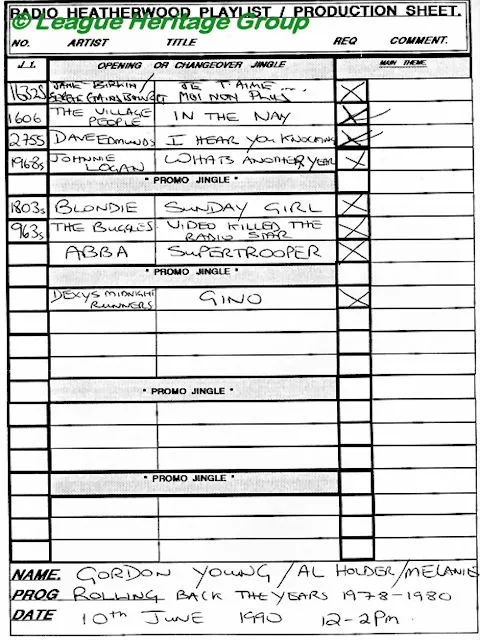 RADIO HEATHERWOOD PLAYLIST / PRODUCTION SHEET.
© League Heritage Group
NO. ARTIST TITLE REQ COMMENT.
J.1. OPENING OR CHANGEOVER JINGLE MAIN THEME.
1632S JANE BIRKIN / JE T'AIME...
SERGE GAINSBOURG MOI NON PLUS
1606 THE VILLAGE PEOPLE IN THE NAVY
2755 DAVE EDMUNDS I HEAR YOU KNOCKING
1968s JOHNNIE LOGAN WHATS ANOTHER YEAR
* PROMO JINGLE *
1803s BLONDIE SUNDAY GIRL
963s THE BUGGLES VIDEO KILLED THE
RADIO STAR
ABBA SUPERTROOPER
* PROMO JINGLE *
DEXYS MIDNIGHT
RUNNERS GINO
* PROMO JINGLE *
* PROMO JINGLE *
NAME. GORDON YOUNG / AL HOLDER / MELANIE
PROG ROLLING BACK THE YEARS 1978-1980
DATE 10TH JUNE 1990 12-2Pm.